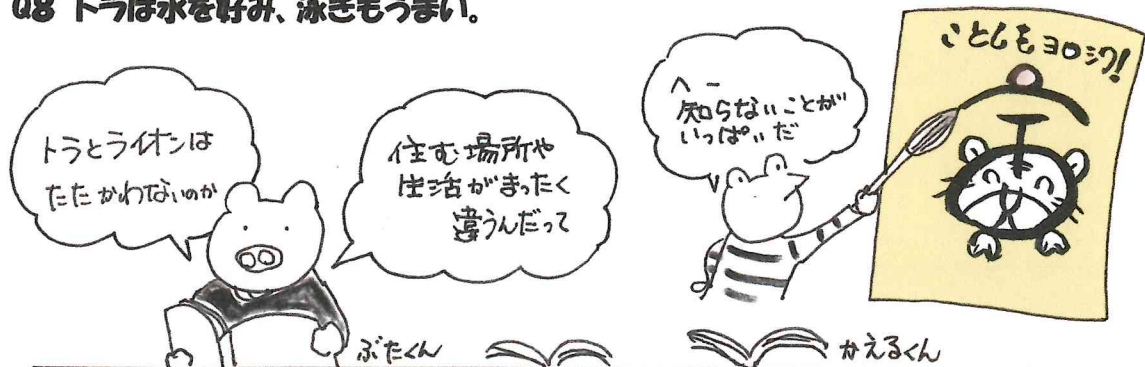 Q8 トラは水を好み、泳ぎもうまい。
トラとライオンは
たたかわないのか
住む場所や
生活がまったく
違うんだって
へー
知らないことが
いっぱいだ
ことしもヨロシク!
ぶたくん
かえるくん